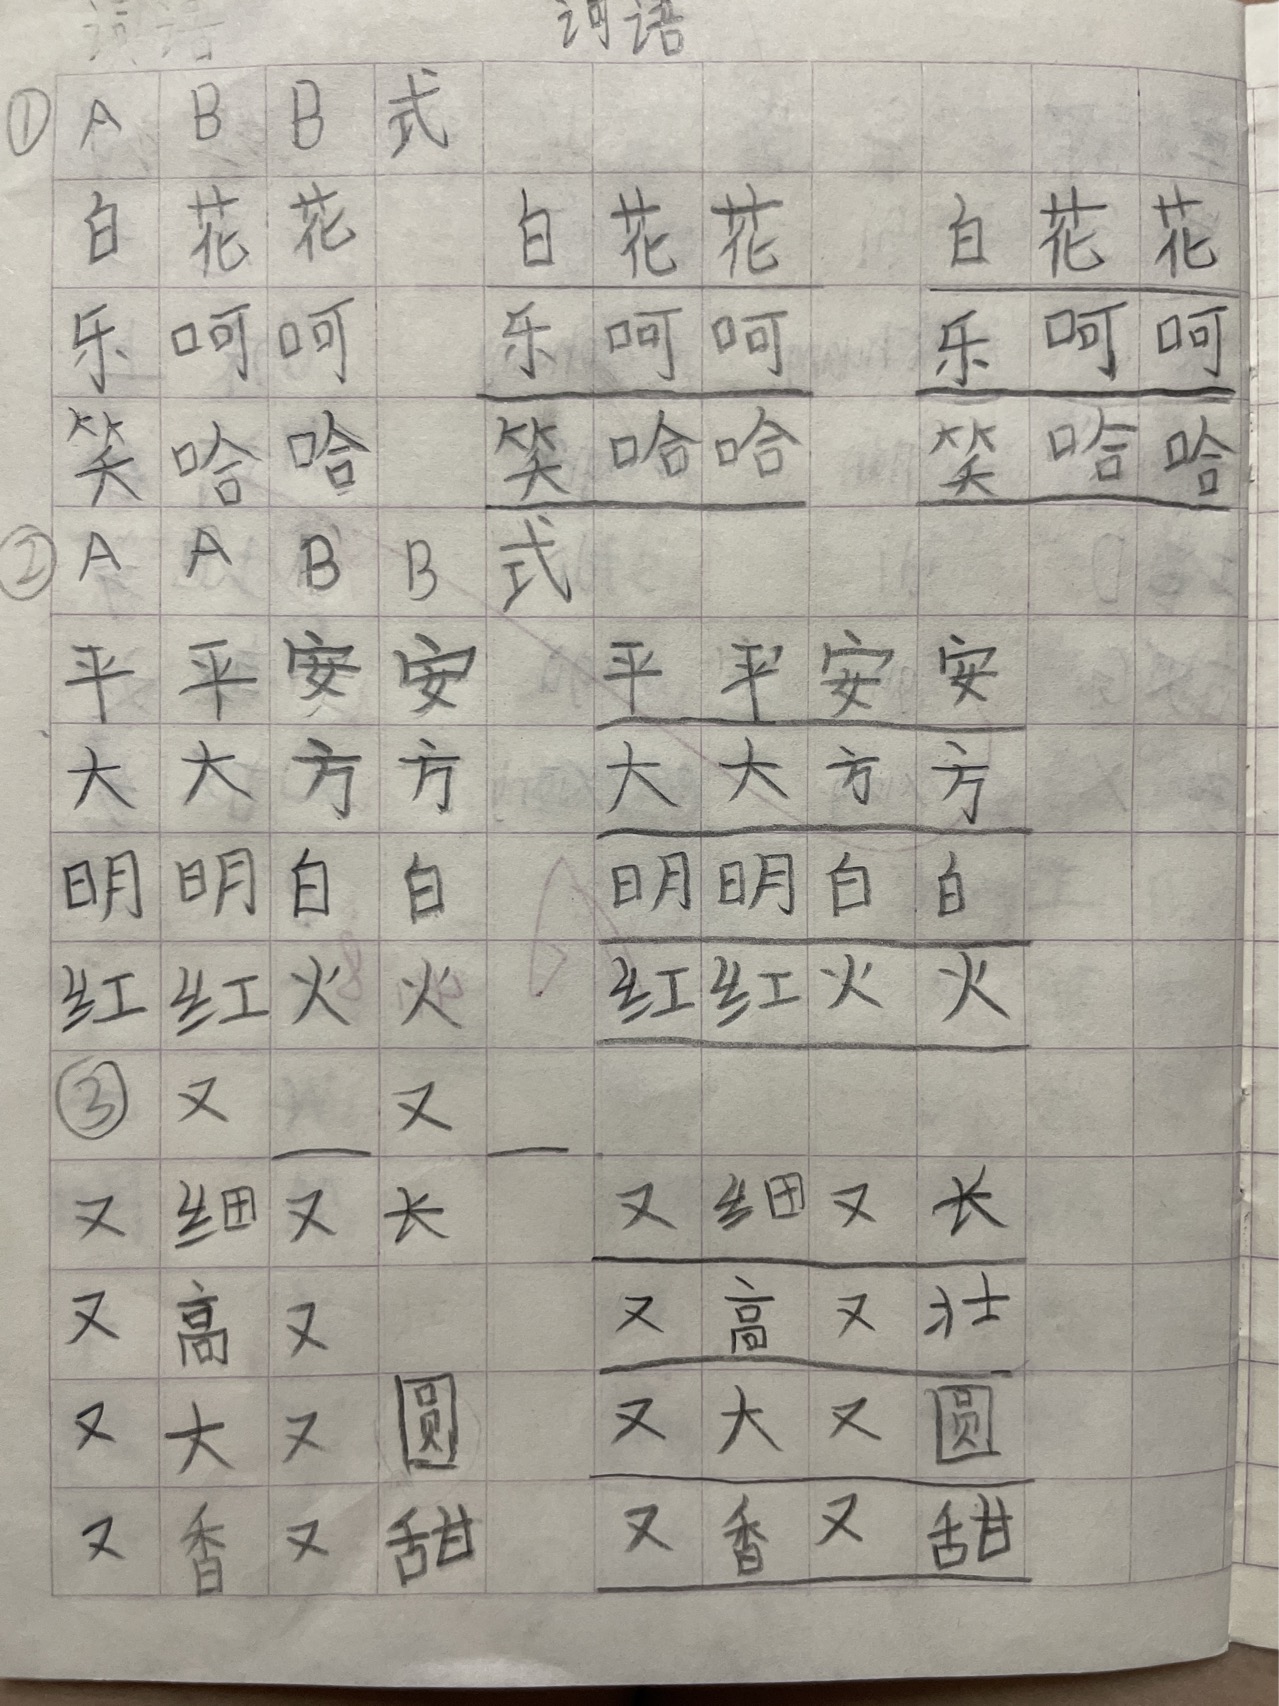 词语
① A B B 式
白花花 白花花 白花花
乐呵呵 乐呵呵 乐呵呵
笑哈哈 笑哈哈 笑哈哈
② A A B B 式
平平安安 平平安安
大大方方 大大方方
明明白白 明明白白
红红火火 红红火火
③ 又__又__
又细又长 又细又长
又高又 又高又壮
又大又圆 又大又圆
又香又甜 又香又甜